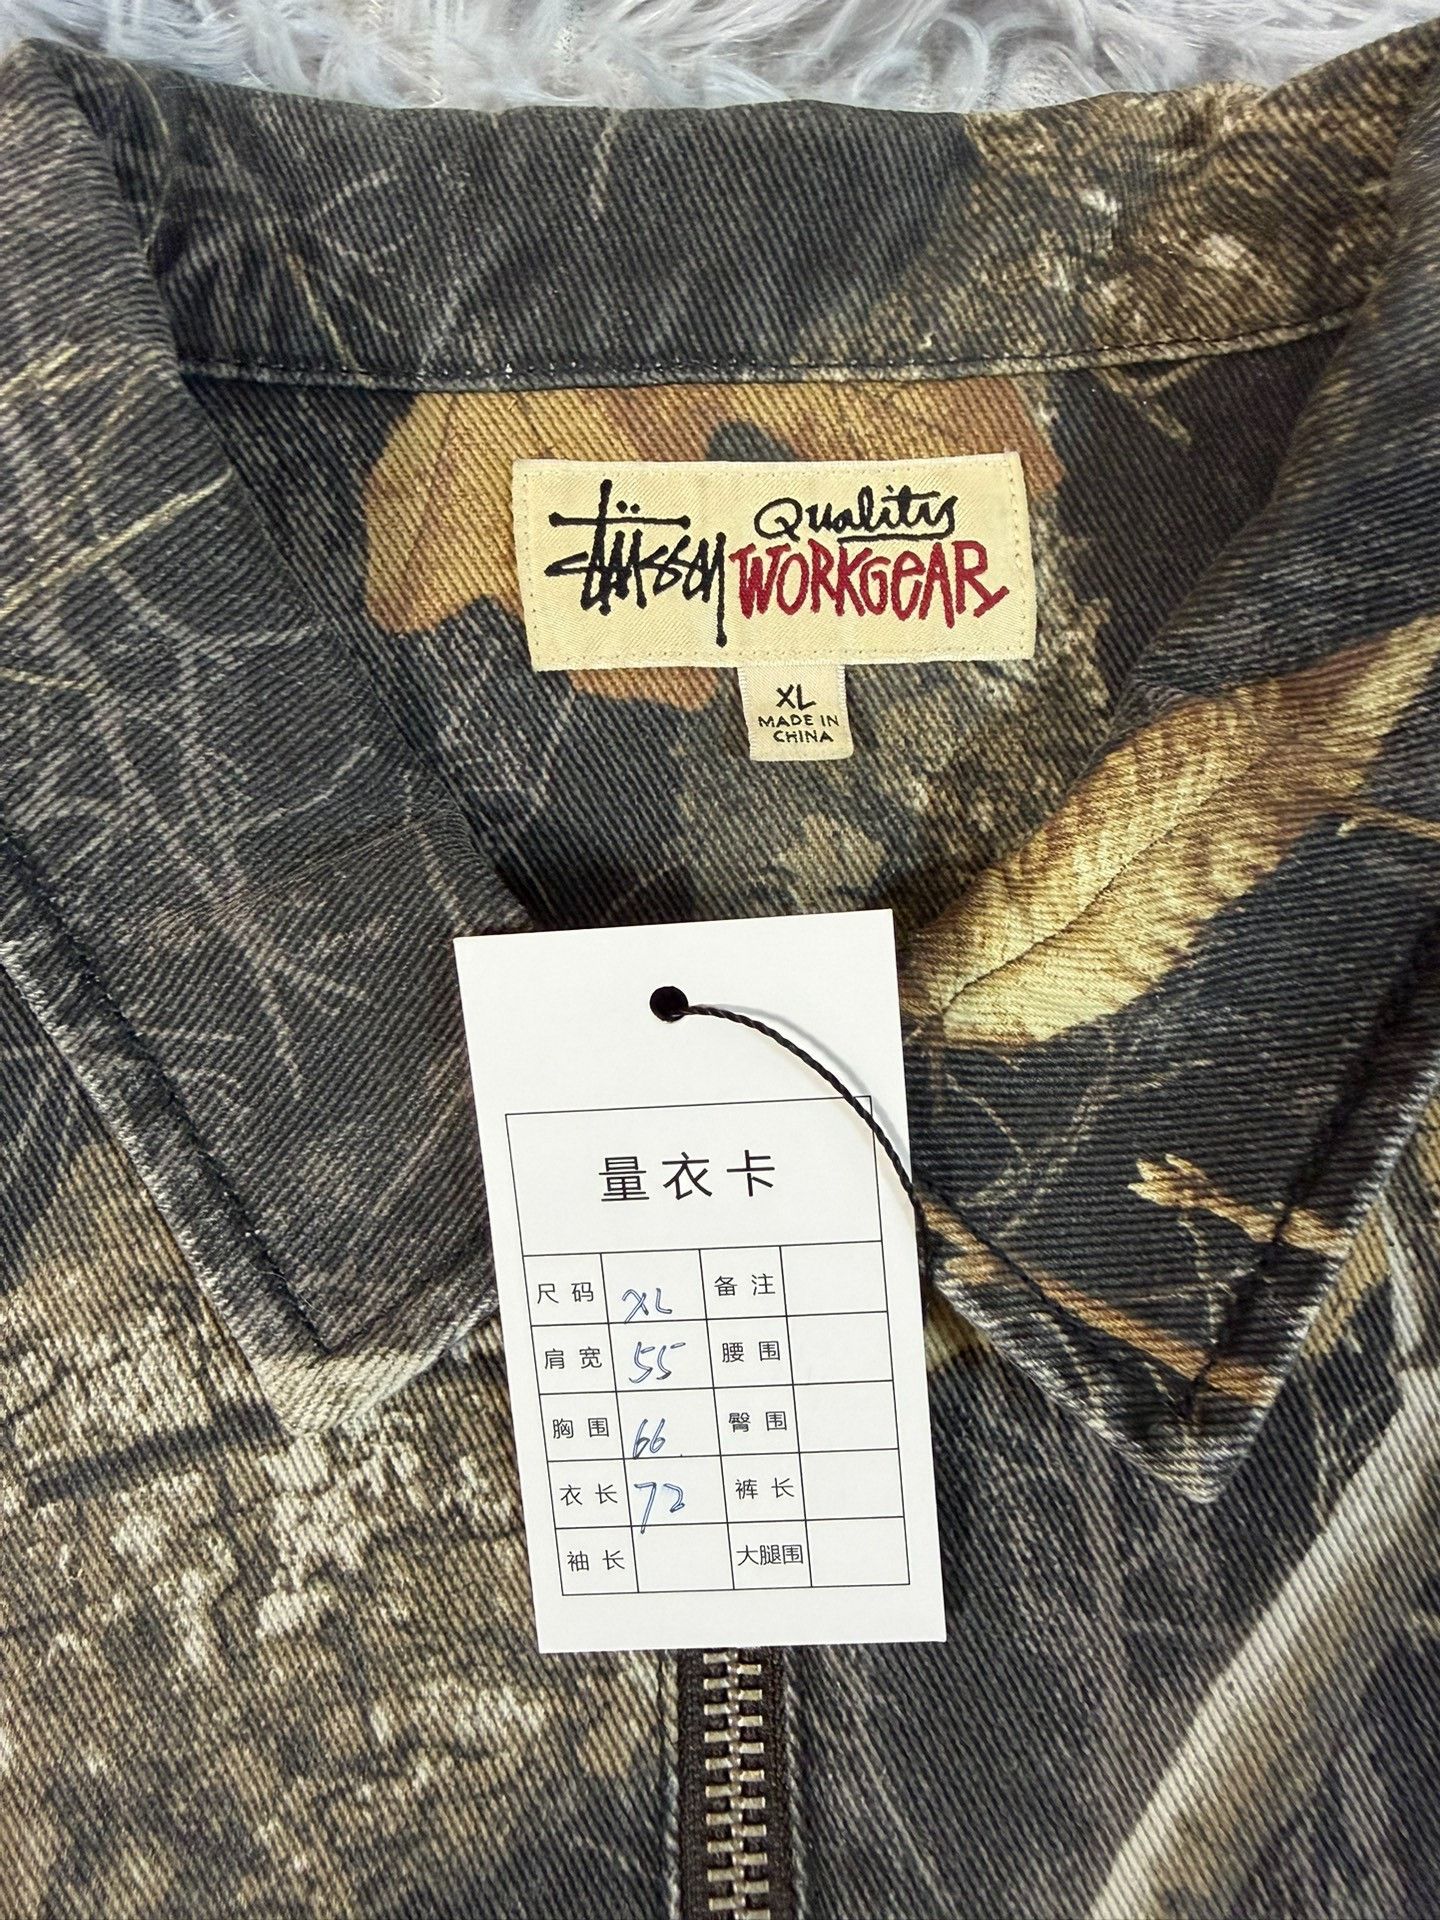 Stüssy Quality
WORKGEAR
XL
MADE IN
CHINA
量衣卡
尺码 XL 备注
肩宽 55 腰围
胸围 66 臀围
衣长 72 裤长
袖长 大腿围